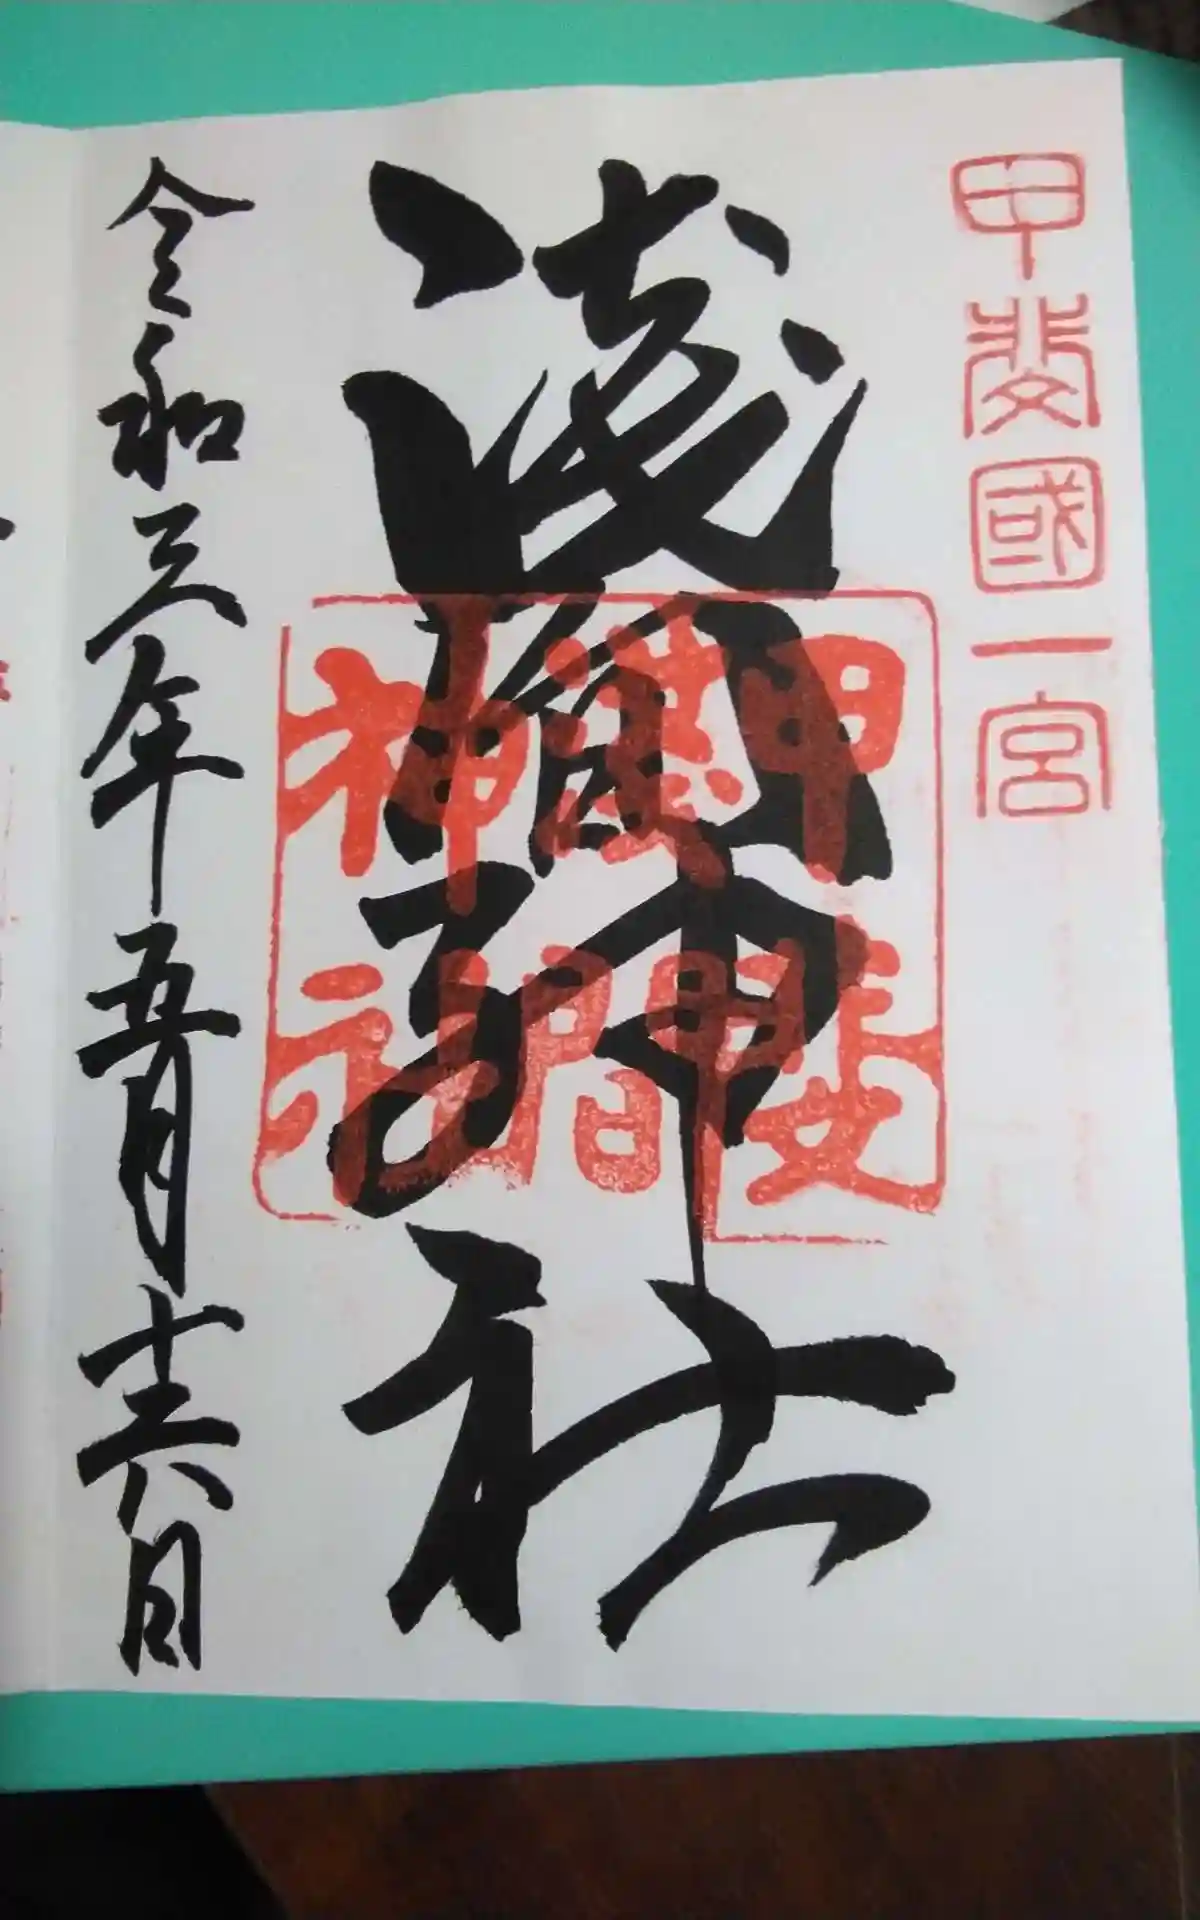 甲斐國一宮
浅間神社
甲斐
淺間
神社
令和三年五月十六日